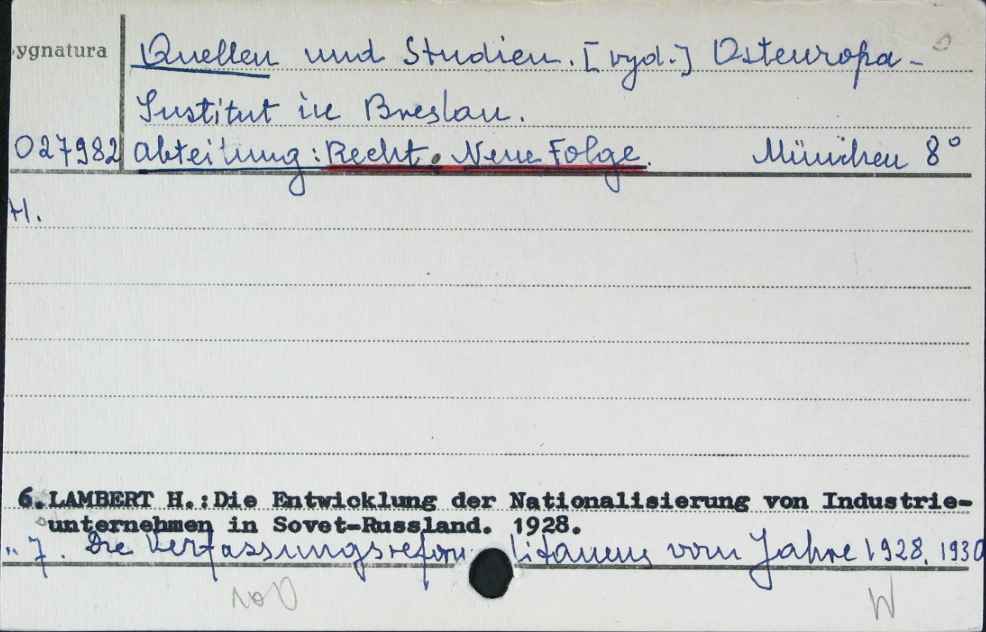 ygnatura Quellen und Studien. [wyd.] Osteuropa-
Institut in Breslau.
027982 Abteilung: Recht. Neue Folge. München 8°
H.
6. LAMBERT H.: Die Entwicklung der Nationalisierung von Industrie-
unternehmen in Sovet-Russland. 1928.
„ 7. Die Verfassungsreform Litauens vom Jahre 1928. 1930
W